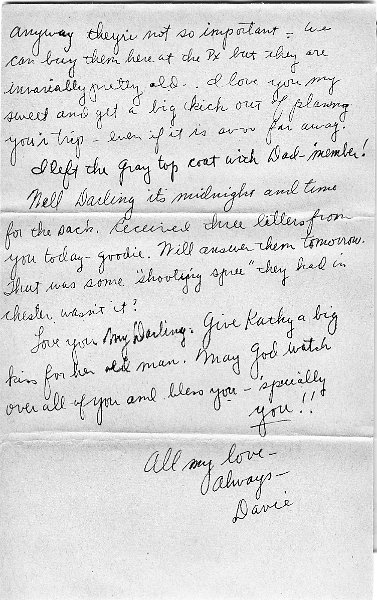 anyway they're not so important - we
can buy them here at the Px but they are
invariably pretty old.. I love you my
sweet and get a big kick out of planing
your trip - even if it is so far away.
I left the gray top coat with Dad - 'member!
Well Darling its midnight and time
for the sack. Received three letters from
you today - goodie. Will answer them tomorrow.
That was some "shooting spree" they had in
chester wasn't it?
Love you My Darling. Give Kathy a big
kiss for her old man. May God watch
over all of you and bless you - 'specially
you!!
All my love -
always -
Davie